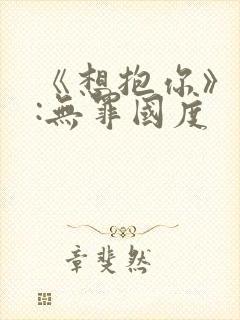 《想抱你》
:無罪國度
章斐然